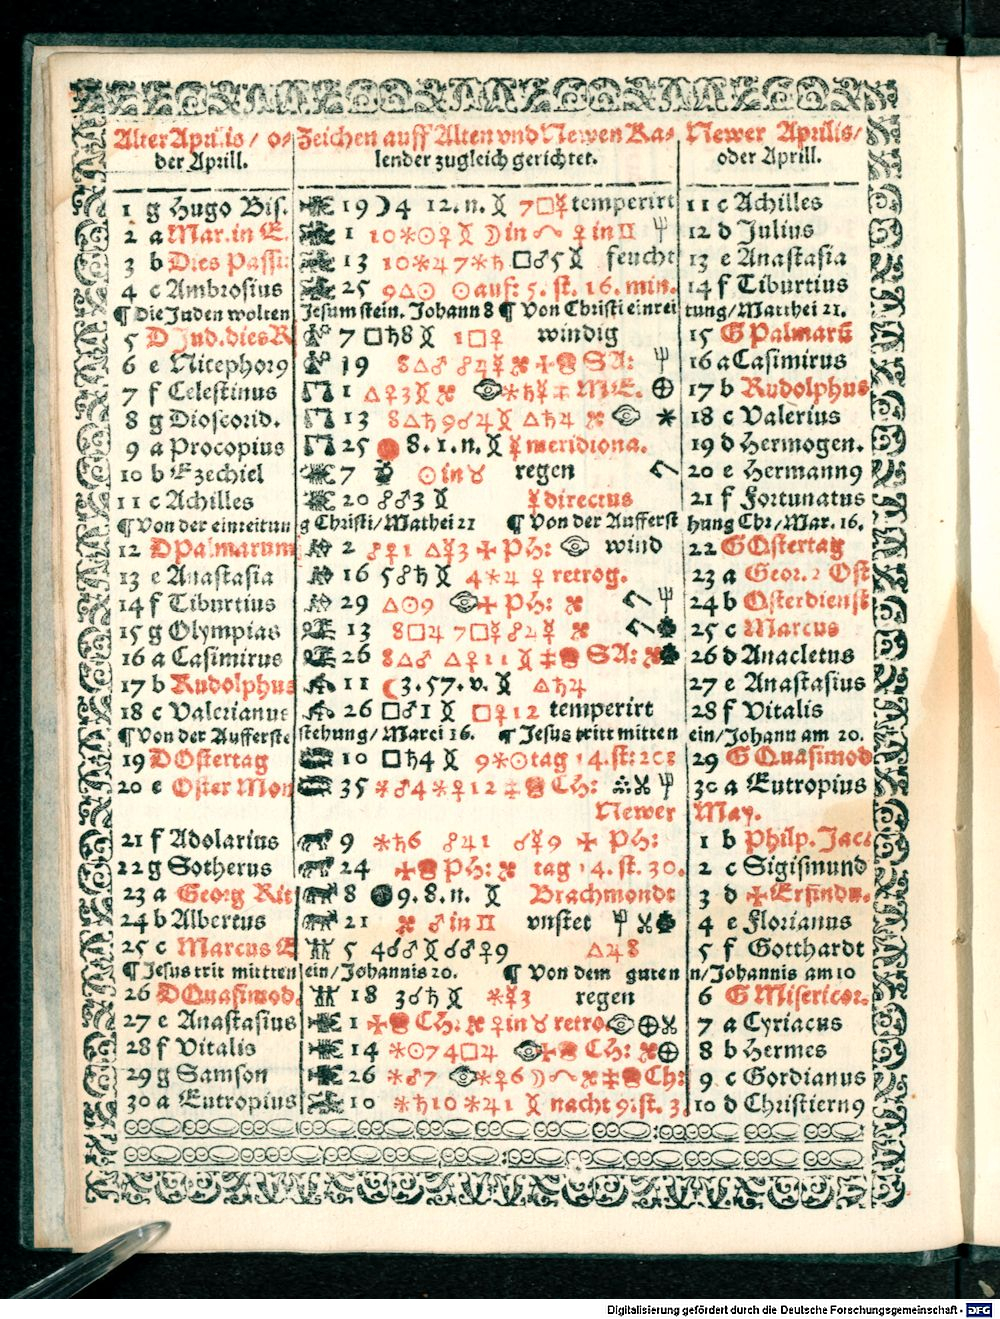 Alter Aprilis/ o- Zeichen auff Alten vnd Newen Ka- Newer Aprilis/
der Aprill. lender zugleich gerichtet. oder Aprill.
1 g Hugo Bis. 19 ☽ 4 12. n. 7 □ ☿ temperirt 11 c Achilles
2 a Mar. in E. 1 10 ⚹ ☉ ♀ ☽ in ♀ in ♊ 12 d Julius
3 b Dies Passi: 13 10 ⚹ ♃ 7 ⚹ ♄ □ ♂ 5 feucht 13 e Anastasia
4 c Ambrosius 25 9 △ ☉ ☉ auf: 5. st. 16. min. 14 f Tiburtius
¶ Die Juden wolten Jesum stein. Johann 8 ¶ Von Christi einrei tung/ Matthei 21.
5 D Jud. dies R 7 □ ♄ 8 1 □ ♀ windig 15 G Palmaru
6 e Nicephor9 19 8 △ ♂ ☍ ♃ ☿ SA: 16 a Casimirus
7 f Celestinus 1 △ ♀ 3 ⚹ ♄ ☿ ME. 17 b Rudolphus
8 g Dioscorid. 13 8 △ ♄ 9 ☍ ♃ △ ♄ ♃ 18 c Valerius
9 a Procopius 25 8. 1. n. ☿ meridiona. 19 d Hermogen.
10 b Ezechiel 7 ☉ in ♉ regen 20 e Hermann9
11 c Achilles 20 ☍ ♂ 3 ☿ directus 21 f Fortunatus
¶ Von der einreitun g Christi/ Mathei 21 ¶ Von der Aufferst hung Chr/ Mar. 16.
12 D Palmarum 2 ☍ ♀ 1 △ ☿ 3 PH: wind 22 G Ostertag
13 e Anastasia 16 5 ☍ ♄ 4 ⚹ ♃ ♀ retrog. 23 a Geor. 2 Ost
14 f Tiburtius 29 △ ☉ 9 PH: 24 b Osterdienst
15 g Olympias 13 8 □ ♃ 7 □ ☿ ☍ ♃ ☿ 25 c Marcus
16 a Casimirus 26 8 △ ♂ △ ♀ 11 SA: 26 d Anacletus
17 b Rudolphus 11 3. 57. v. △ ♄ ♃ 27 e Anastasius
18 c Valerianus 26 □ ♂ 1 □ ♀ 12 temperirt 28 f Vitalis
¶ Von der Aufferste stehung/ Marci 16. ¶ Jesus tritt mitten ein/ Johann am 20.
19 D Ostertag 10 □ ♄ 4 9 ⚹ ☉ tag 14. st: 20: 29 G Quasimod
20 e Oster Mon 35 ⚹ ♂ 4 ⚹ ♀ 12 CH: 30 a Eutropius
Newer May.
21 f Adolarius 9 ⚹ ♄ 6 ☍ ♃ 1 ☌ ☿ 9 PH: 1 b Philp. Jac:
22 g Sotherus 24 PH: tag 14. st. 30. 2 c Sigismund
23 a Georg Rit 8 9. 8. n. Brachmonde 3 d Erfindu.
24 b Albertus 21 ♂ in ♊ vnstet 4 e Florianus
25 c Marcus E 5 4 ☌ ♂ ☌ ♂ ♀ 9 △ ♃ 8 5 f Gotthardt
¶ Jesus trit mittten ein/ Johannis 20. ¶ Von dem guten n/ Johannis am 10
26 D Quasimod. 18 3 ☌ ♄ ⚹ ☿ 3 regen 6 G Misericor.
27 e Anastasius 1 CH: ♀ in ♉ retro. 7 a Cyriacus
28 f Vitalis 14 ⚹ ☉ 7 4 □ ♃ CH: 8 b Hermes
29 g Samson 26 ⚹ ♂ 7 ⚹ ♀ 6 ☽ CH: 9 c Gordianus
30 a Eutropius 10 ⚹ ♄ 10 ⚹ ♃ 1 nacht 9: st. 3. 10 d Christiern9
Digitalisierung gefördert durch die Deutsche Forschungsgemeinschaft - DFG